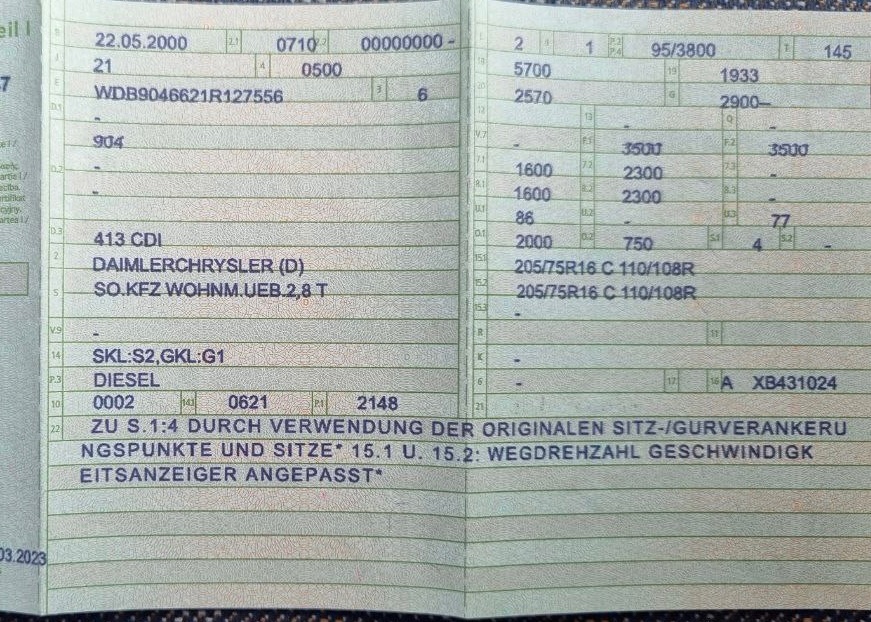 eil I
7
03.2023
B 22.05.2000 2.1 0710 2.2 00000000 -
J 21 4 0500
E WDB9046621R127556 3 6
D.1 -
904
D.2 -
-
D.3 413 CDI
2 DAIMLERCHRYSLER (D)
5 SO.KFZ WOHNM.UEB.2,8 T
V.9 -
14 SKL:S2,GKL:G1
P.3 DIESEL
10 0002 14.1 0621 P.1 2148
L 2 9 1 P.2 P.4 95/3800 T 145
18 5700 19 1933
20 2570 G 2900–
12 13 - Q -
V.7 - F.1 3500 F.2 3500
7.1 1600 7.2 2300 7.3 -
8.1 1600 8.2 2300 8.3 -
U.1 86 U.2 - U.3 77
O.1 2000 O.2 750 S.1 4 S.2 -
15.1 205/75R16 C 110/108R
15.2 205/75R16 C 110/108R
15.3 -
R 11
K -
6 - 17 16 A XB431024
21
22 ZU S.1:4 DURCH VERWENDUNG DER ORIGINALEN SITZ-/GURVERANKERU
NGSPUNKTE UND SITZE* 15.1 U. 15.2: WEGDREHZAHL GESCHWINDIGK
EITSANZEIGER ANGEPASST*